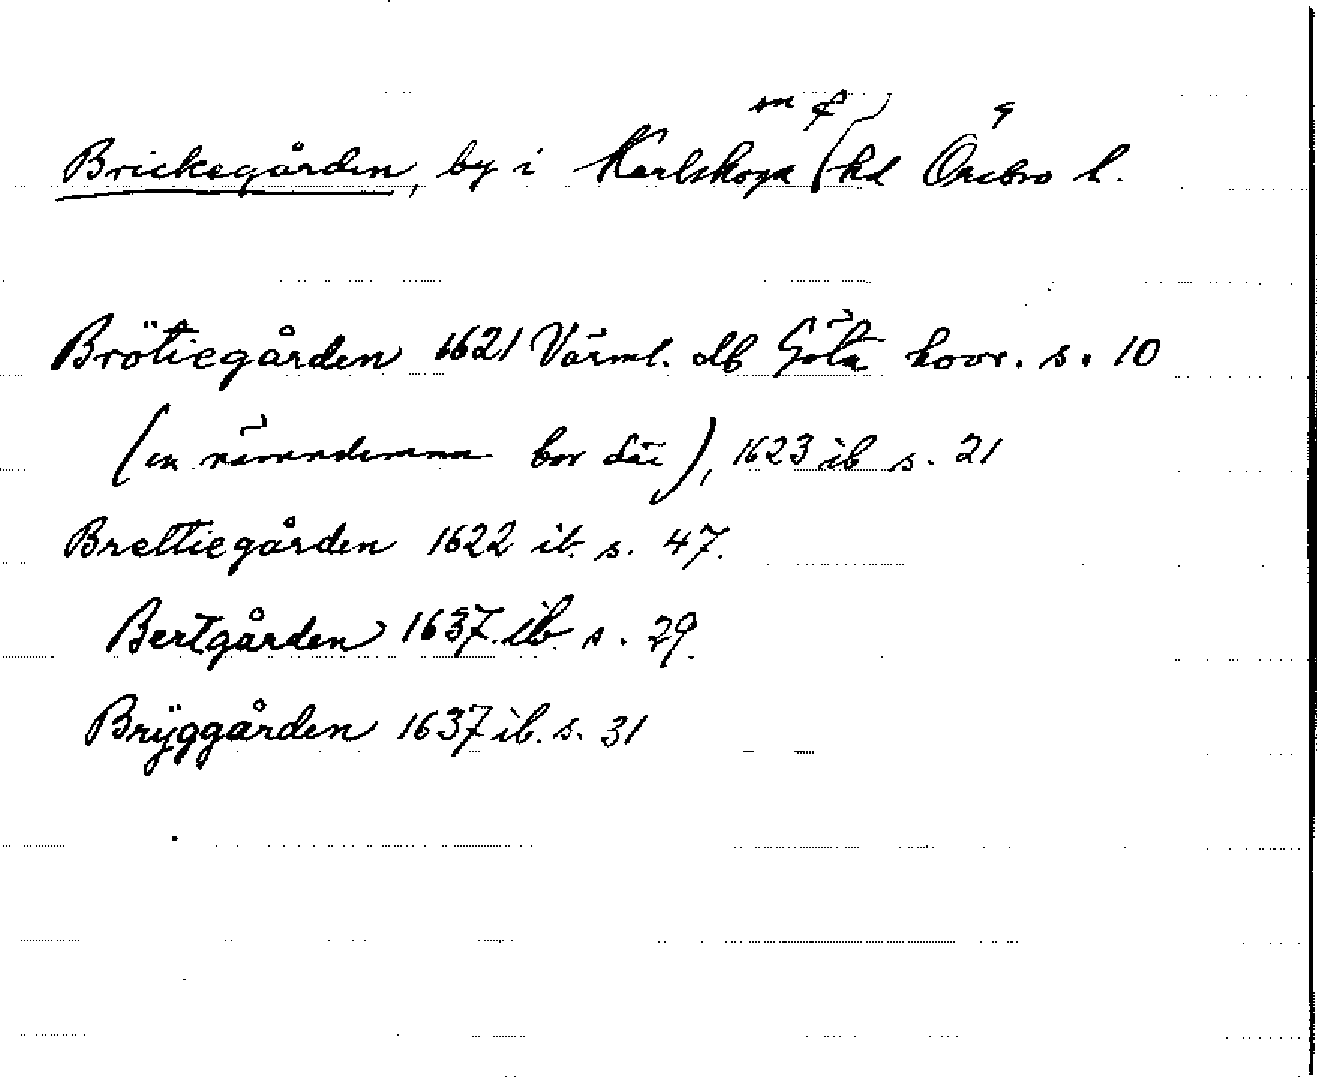 Brickegården, by i Karlskoga sn o ( hd Örebro l.
Brötiegården 1621 Värml. db Göta hovr. s. 10
(en nämndeman bor där), 1623 ib s. 21
Brettiegården 1622 ib. s. 47.
Bertgården 1637. ib s. 29.
Brÿggården 1637 ib. s. 31